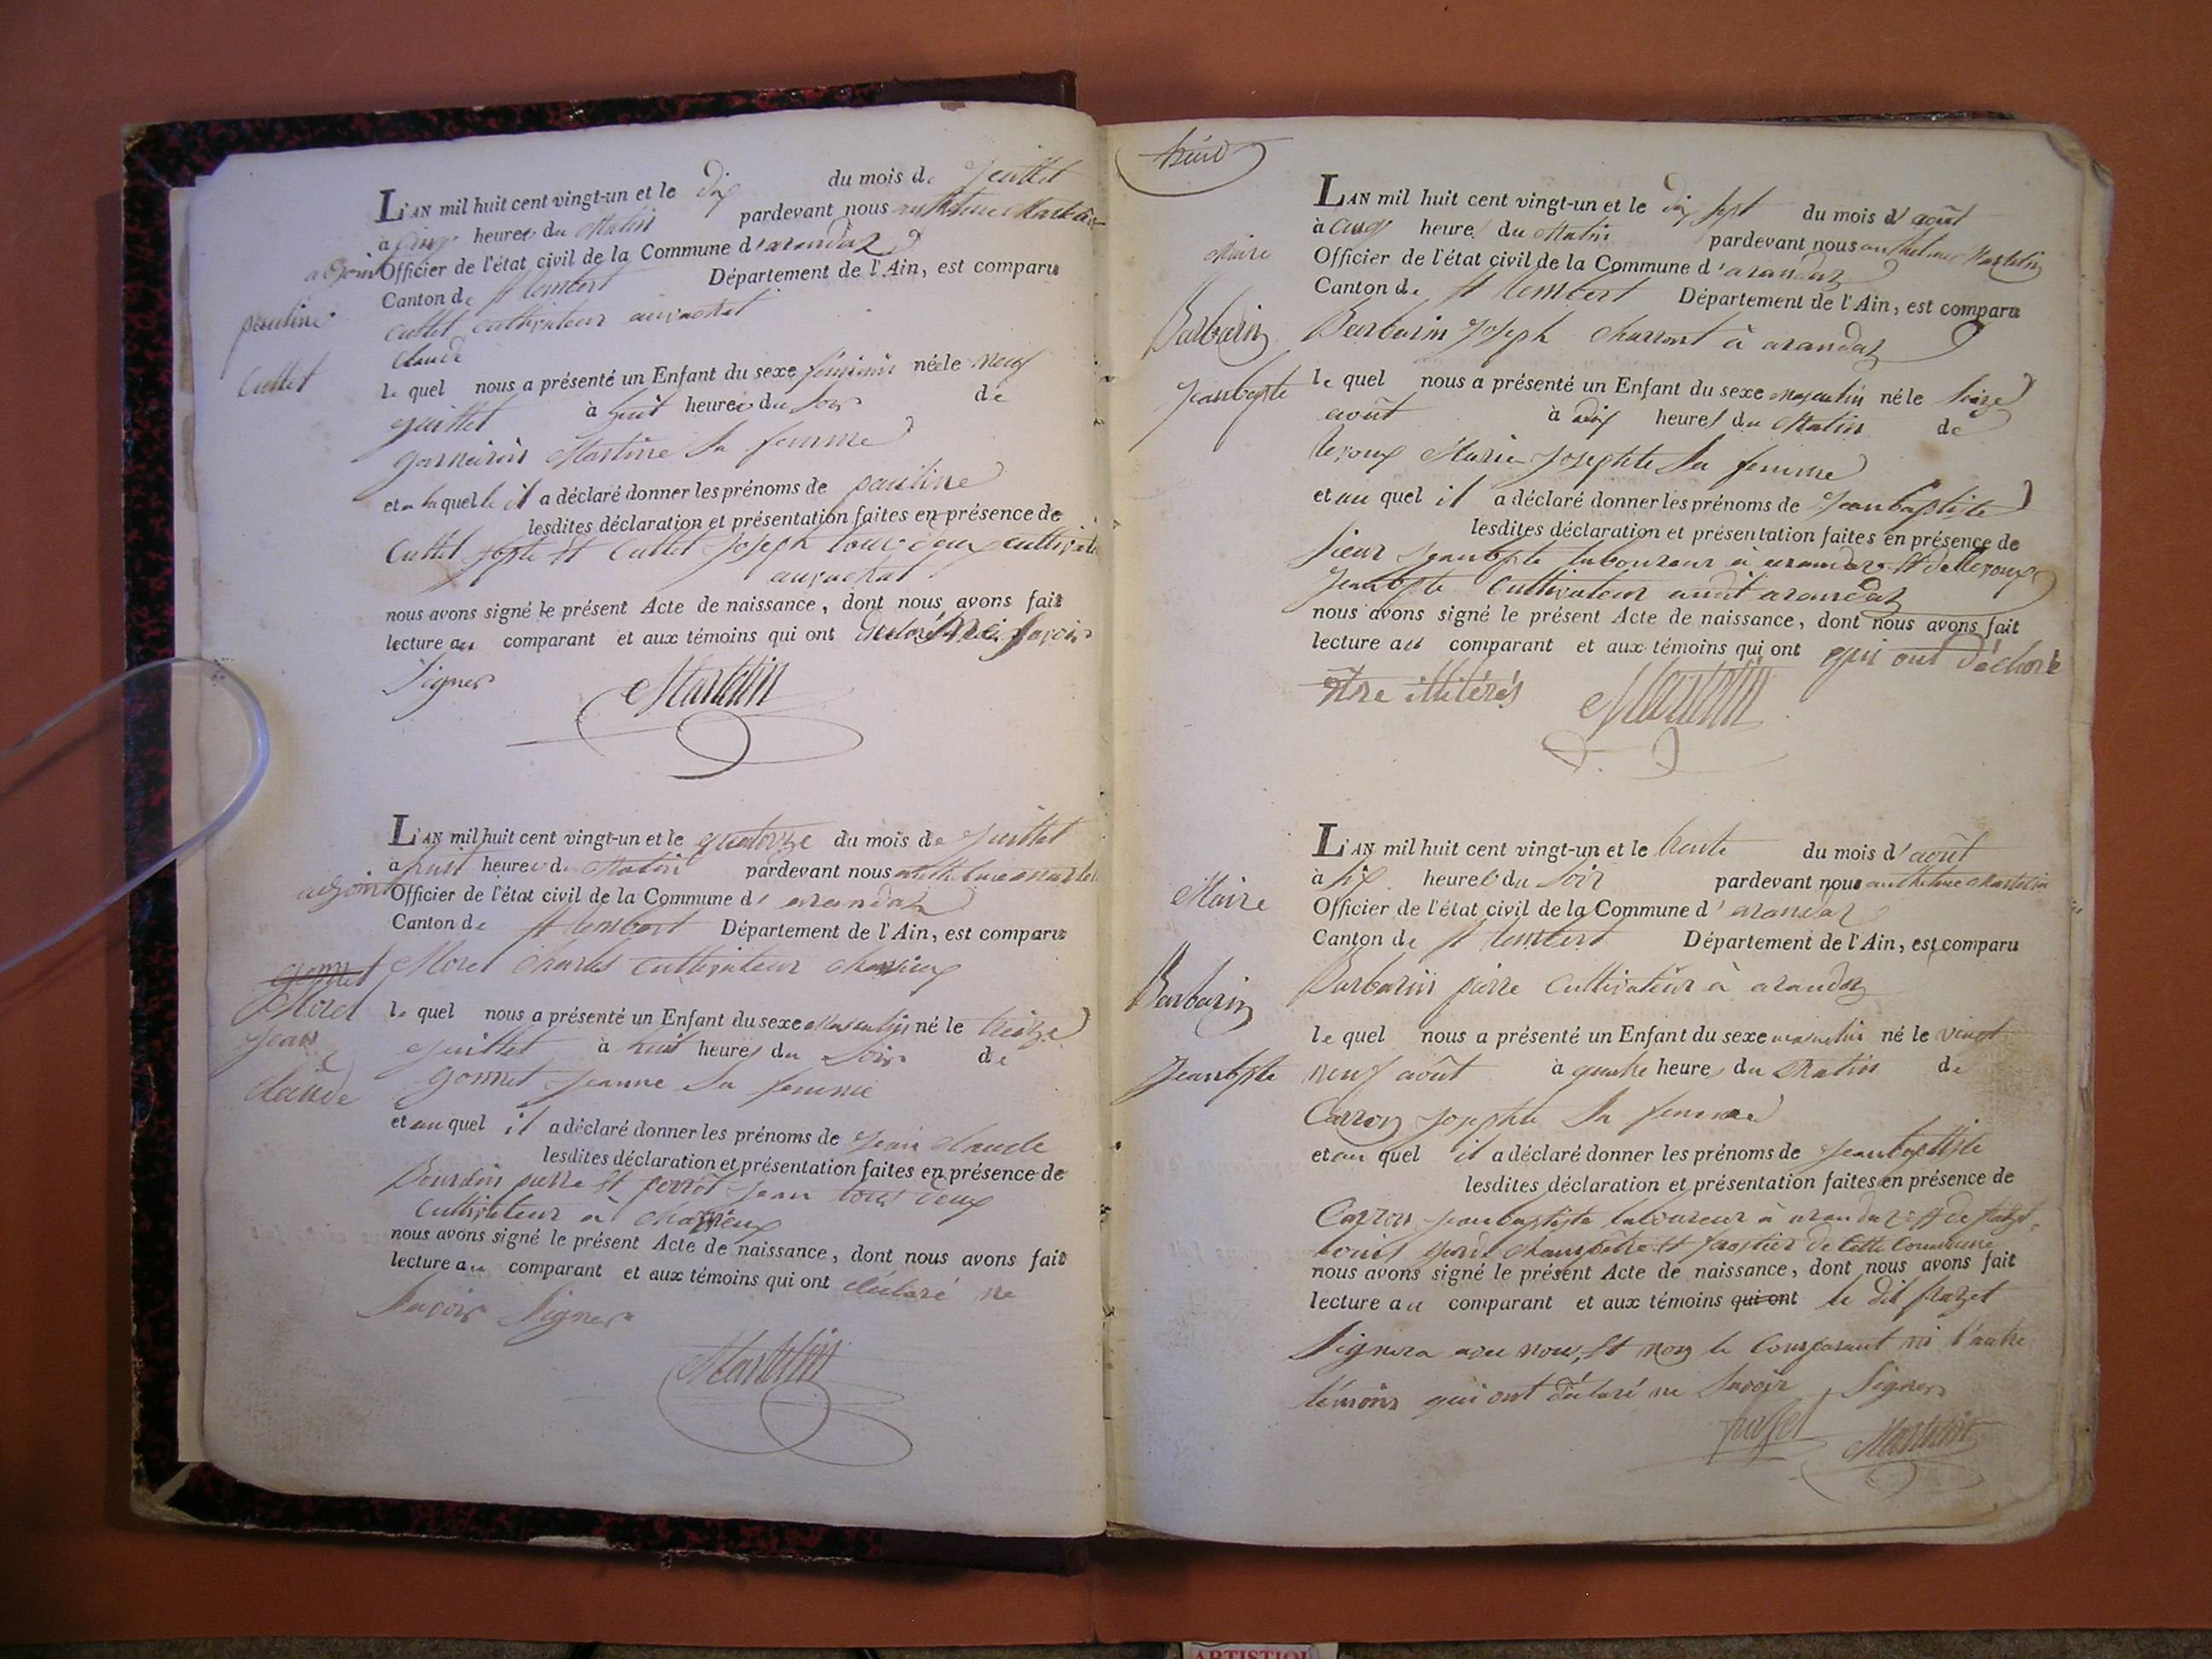 L'AN mil huit cent vingt-un et le dix du mois de juillet
à cinq heures du Matin pardevant nous anthelme Martelin
adjoint Officier de l'état civil de la Commune d'arandaz
Canton de st Rembert Département de l'Ain, est comparu
pauline
Cuttet cultivateur
Claude
Cuttet
le quel nous a présenté un Enfant du sexe féminin née le neuf
juillet à huit heures du soir de
Martine sa femme
et a la quelle il a déclaré donner les prénoms de pauline
lesdites déclaration et présentation faites en présence de
Cuttet jspte et Cuttet joseph tous deux
nous avons signé le présent Acte de naissance, dont nous avons fait
lecture au comparant et aux témoins qui ont déclaré ne savoir
signer
Martelin
L'AN mil huit cent vingt-un et le quatorze du mois de juillet
à huit heures du Matin pardevant nous anthelme
adjoint Officier de l'état civil de la Commune d'arandaz
Canton de st Rembert Département de l'Ain, est comparu
gonnet Morel Charles cultivateur
Morel le quel nous a présenté un Enfant du sexe Masculin né le treize
jean juillet à huit heures du soir de
Claude gonnet jeanne sa femme
et au quel il a déclaré donner les prénoms de jean claude
lesdites déclaration et présentation faites en présence de
Bourdin pierre et perrot jean tous deux
Cultivateur à
nous avons signé le présent Acte de naissance, dont nous avons fait
lecture au comparant et aux témoins qui ont déclaré ne
savoir signer
Martelin
L'AN mil huit cent vingt-un et le dix sept du mois d'août
à cinq heures du Matin pardevant nous anthelme Martelin
Maire Officier de l'état civil de la Commune d'arandaz
Canton de st Rembert Département de l'Ain, est comparu
Barbarin Barbarin joseph Charront à arandaz
Jeanbpte le quel nous a présenté un Enfant du sexe masculin né le seize
août à dix heures du Matin de
Marie josephte sa femme
et au quel il a déclaré donner les prénoms de jeanbaptiste
lesdites déclaration et présentation faites en présence de
sieur jeanbpte laboureur à arandaz et de
jeanbpte cultivateur audit arandaz
nous avons signé le présent Acte de naissance, dont nous avons fait
lecture au comparant et aux témoins qui ont qui ont déclaré
être illitérés Martelin
L'AN mil huit cent vingt-un et le trente du mois d'août
à six heures du soir pardevant nous anthelme Martelin
Maire Officier de l'état civil de la Commune d'arandaz
Canton de st Rembert Département de l'Ain, est comparu
Barbarin Barbarin pierre cultivateur à arandaz
le quel nous a présenté un Enfant du sexe masculin né le vingt
Jeanbpte neuf août à quatre heures du Matin de
Carron josephte sa femme
et au quel il a déclaré donner les prénoms de jeanbaptiste
lesdites déclaration et présentation faites en présence de
Carron jeanbaptiste laboureur à arandaz et de
louis garde champêtre et forestier de Cette Commune
nous avons signé le présent Acte de naissance, dont nous avons fait
lecture au comparant et aux témoins qui ont le dit
signera avec nous, et non le Comparant ni l'autre
témoin qui ont déclaré ne savoir signer
Martelin